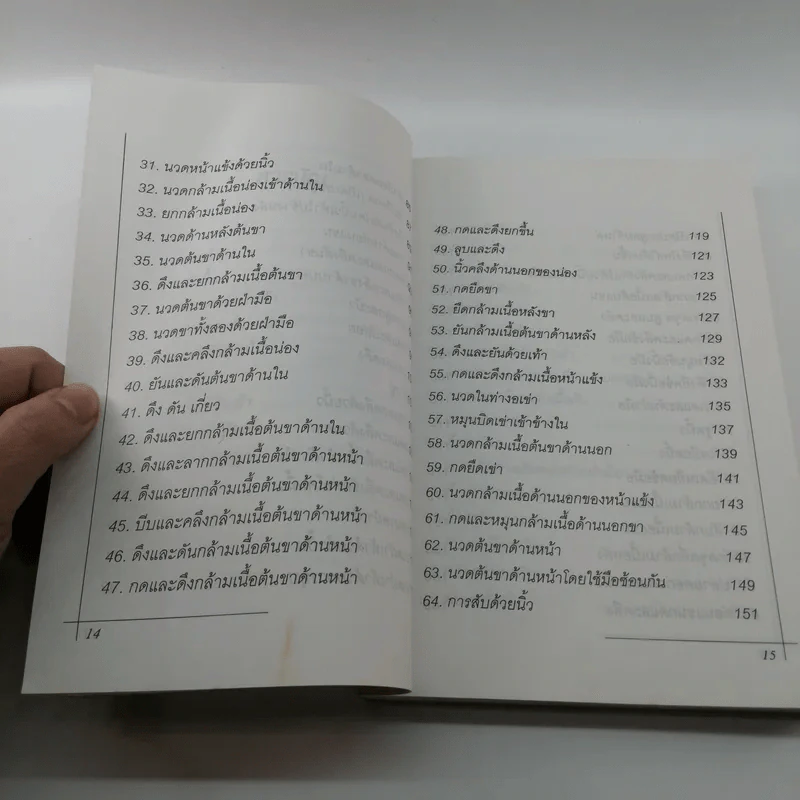 31. นวดหน้าแข้งด้วยนิ้ว
32. นวดกล้ามเนื้อน่องเข้าด้านใน
33. ยกกล้ามเนื้อน่อง
34. นวดด้านหลังต้นขา
35. นวดต้นขาด้านใน
36. ดึงและยกกล้ามเนื้อต้นขา
37. นวดต้นขาด้วยฝ่ามือ
38. นวดขาทั้งสองด้วยฝ่ามือ
39. ดึงและคลึงกล้ามเนื้อน่อง
40. ยันและดันต้นขาด้านใน
41. ดึง ดัน เกี่ยว
42. ดึงและยกกล้ามเนื้อต้นขาด้านใน
43. ดึงและลากกล้ามเนื้อต้นขาด้านหน้า
44. ดึงและยกกล้ามเนื้อต้นขาด้านหน้า
45. บีบและคลึงกล้ามเนื้อต้นขาด้านหน้า
46. ดึงและดันกล้ามเนื้อต้นขาด้านหน้า
47. กดและดึงกล้ามเนื้อต้นขาด้านหน้า
14
48. กดและดึงยกขึ้น 119
49. ลูบและดึง 121
50. นิ้วคลึงด้านนอกของน่อง 123
51. กดยืดขา 125
52. ยืดกล้ามเนื้อหลังขา 127
53. ยันกล้ามเนื้อต้นขาด้านหลัง 129
54. ดึงและยันด้วยเท้า 132
55. กดและดึงกล้ามเนื้อหน้าแข้ง 133
56. นวดในท่างอเข่า 135
57. หมุนบิดเข่าเข้าข้างใน 137
58. นวดกล้ามเนื้อต้นขาด้านนอก 139
59. กดยืดเข่า 141
60. นวดกล้ามเนื้อด้านนอกของหน้าแข้ง 143
61. กดและหมุนกล้ามเนื้อด้านนอกขา 145
62. นวดต้นขาด้านหน้า 147
63. นวดต้นขาด้านหน้าโดยใช้มือซ้อนกัน 149
64. การสับด้วยนิ้ว 151
15